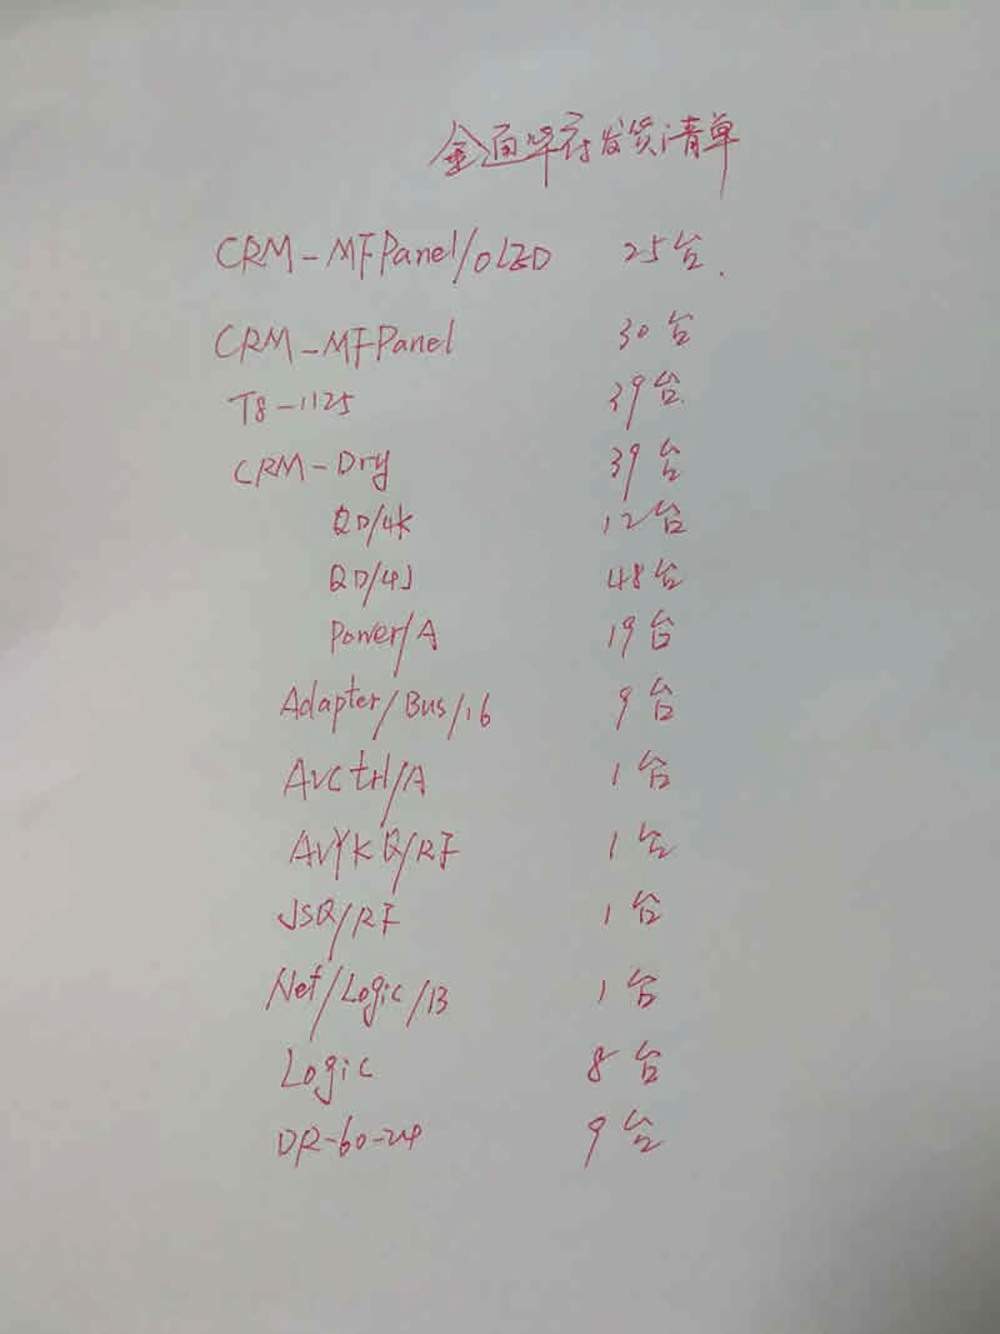 金通华府发货清单
CRM-MFPanel/OLED 25台.
CRM-MFPanel 30台
T8-1125 39台
CRM-Dry 39台
QD/4K 12台
QD/4J 48台
Power/A 19台
Adapter/Bus/16 9台
AVCtrl/A 1台
AVYKQ/RF 1台
JSQ/RF 1台
Net/Logic/B 1台
Logic 8台
DR-60-24 9台